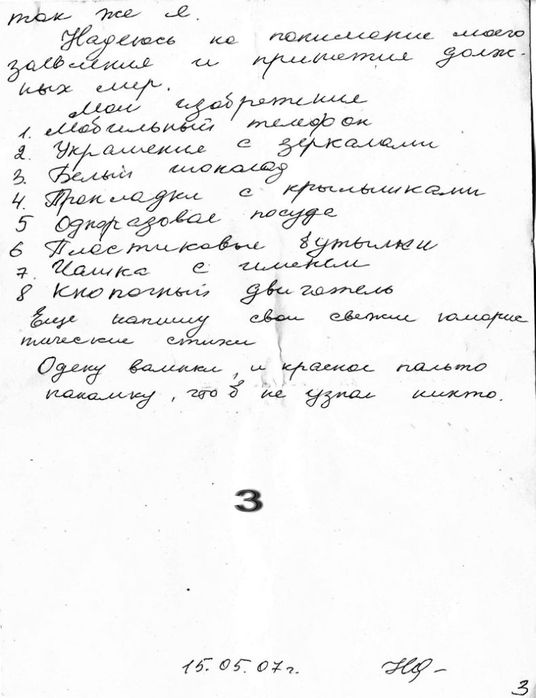 так же я.
Надеюсь на понимание моего
заявления и принятие долж-
ных мер.
Мои изобретения
1. Мобильный телефон
2. Украшение с зеркалами
3. Белый шоколад
4. Прокладки с крылышками
5 Одноразовое посуда
6 Пластиковые бутылки
7. Чашка с именем
8 Кнопочный двигатель
Еще напишу свои свежие юморис
тические стихи
Одену валенки, и красное пальто
панамку, что б не узнал никто.
3
15.05.07г.
3